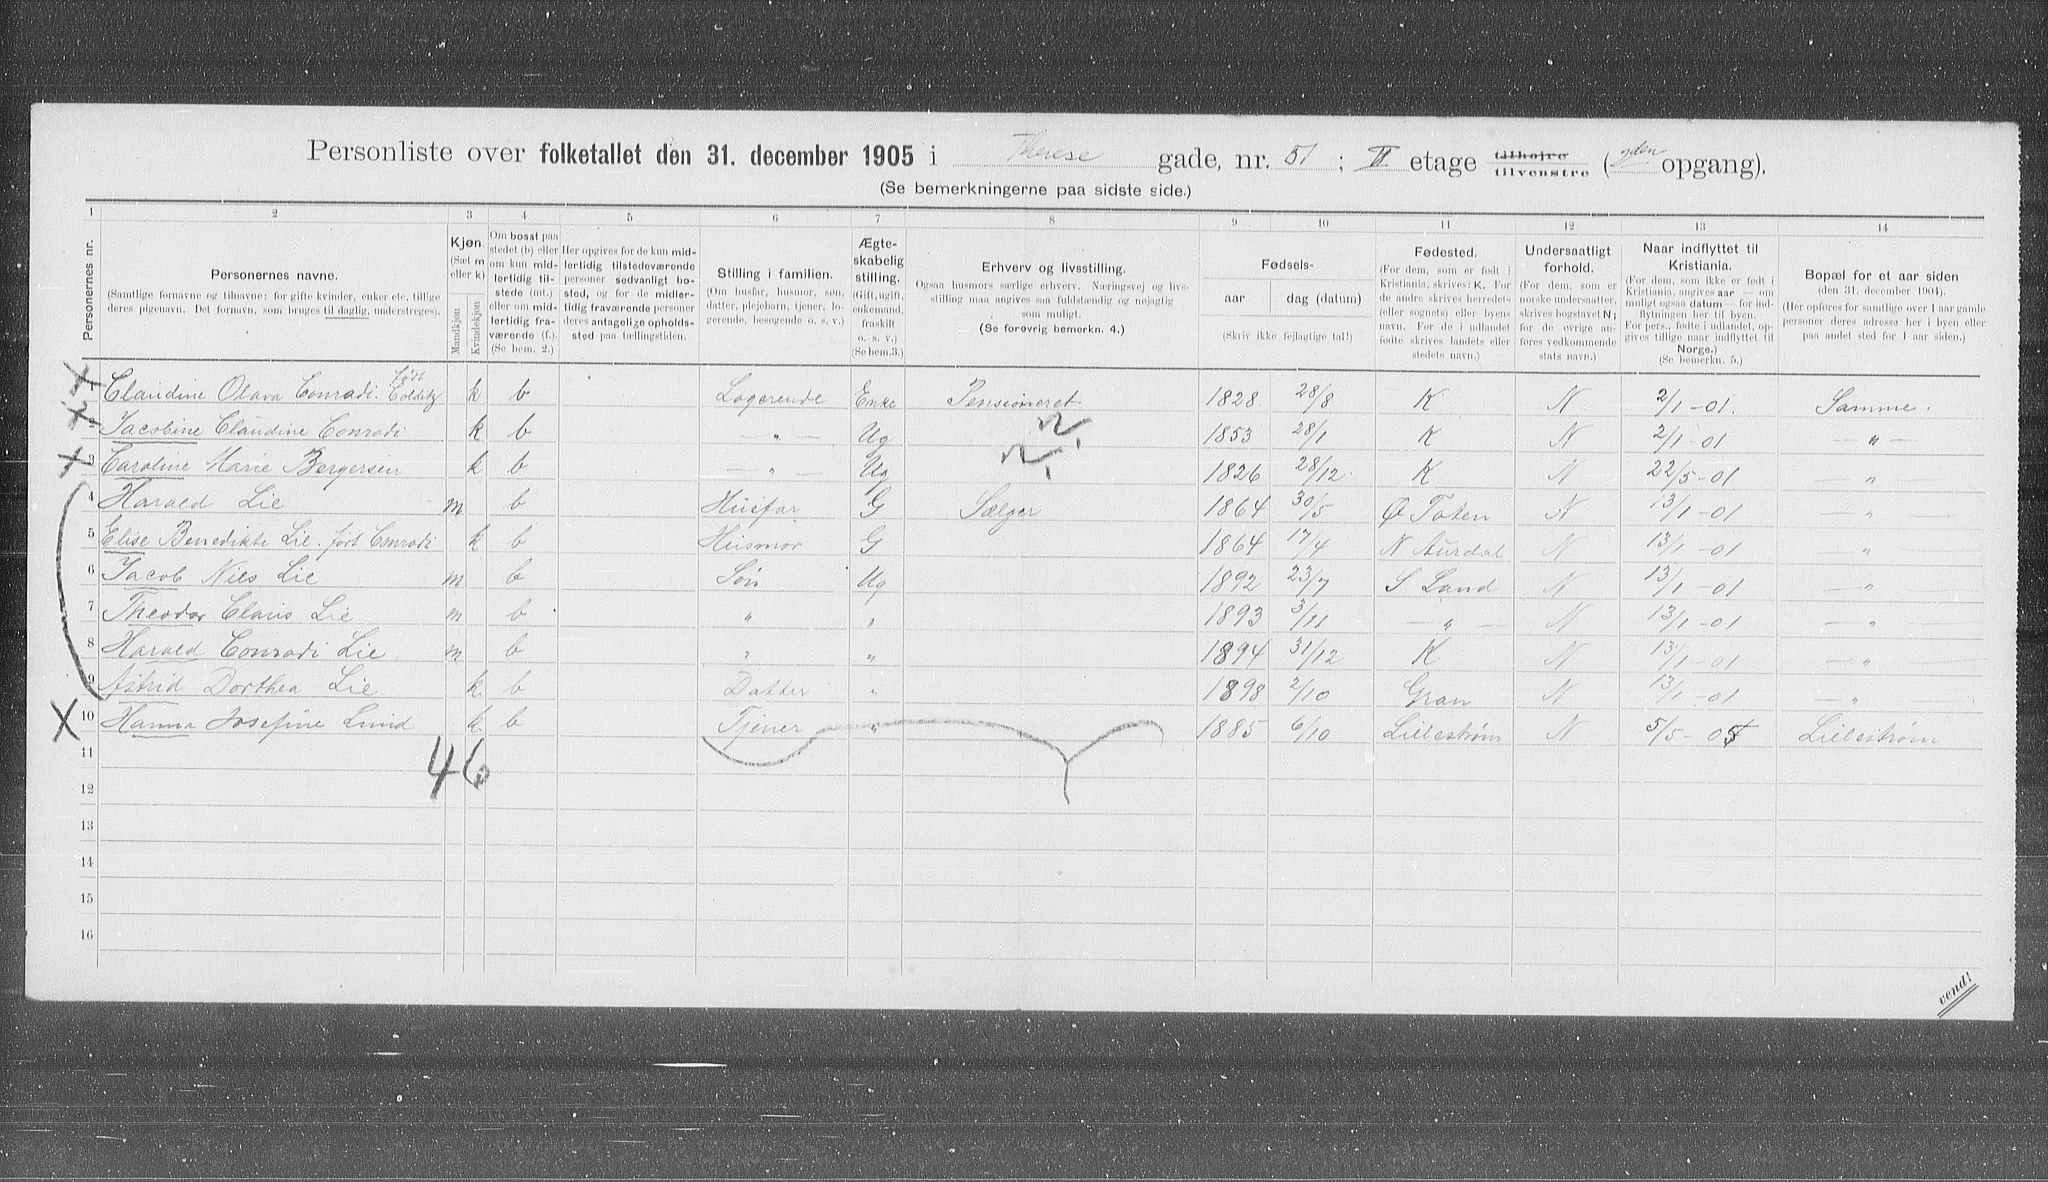 Personliste over folketallet den 31. december 1905 i Therese gade, nr. 51; II etage tilhøjre tilvenstre (gden opgang).
(Se bemerkningerne paa sidste side.)
1 2 3 4 5 6 7 8 9 10 11 12 13 14
Personernes nr.
Personernes navne.
(Samtlige fornavne og tilnavne; for gifte kvinder, enker etc. tillige deres pigenavn. Det fornavn, som bruges til daglig, understreges).
Kjøn.
(Sæt m eller k)
Mandkjøn
Kvindekjøn
Om bosat paa stedet (b) eller om kun midlertidig tilstede (mt.) eller om midlertidig fraværende (f.). (Se bem. 2.)
Her opgives for de kun midlertidig tilstedeværende personer sedvanligt bosted, og for de midlertidig fraværende personer deres antagelige opholdssted paa tællingstiden.
Stilling i familien.
(Om husfar, husmor, søn, datter, plejebarn, tjener, logerende, besøgende o. s. v.)
Ægteskabelig stilling.
(Gift, ugift, enkemand, fraskilt o. s. v.)
(Se bem.3.)
Erhverv og livsstilling.
Ogsaa husmors særlige erhverv. Næringsvej og livsstilling maa angives saa fuldstændig og nøjagtig som muligt.
(Se forøvrig bemerkn. 4.)
Fødsels-
aar
dag (datum)
(Skriv ikke fejlagtige tal!)
Fødested.
(For dem, som er født i Kristiania, skrives: K. For de andre skrives herredets (eller sognets) eller byens navn. For de i udlandet fødte skrives landets eller stedets navn.)
Undersaatligt forhold.
(For dem, som er norske undersaatter, skrives bogstavet N; for de øvrige anføres vedkommende stats navn.)
Naar indflyttet til Kristiania.
(For dem, som ikke er født i Kristiania, angives aar — om muligt ogsaa datum — for indflytningen her til byen. For pers., fødte i udlandet, opgives tillige naar indflyttet til Norge.)
(Se bemerkn. 5.)
Bopæl for et aar siden
(den 31. december 1904).
(Her opføres for samtlige over 1 aar gamle personer deres adresse her i byen eller paa andet sted for 1 aar siden.)
1 Claudine Olava Conradi født Colditz k b Logerende Enke Pensioneret 1828 28/8 K N 2/1-01. Samme.
2 Jacobine Claudine Conradi k b — „ — Ug 1853 28/1 K N 2/1-01 — „ —
3 Caroline Marie Bergersen k b — „ — Ug 1826 28/12 K N 22/5-01 — „ —
4 Harald Lie m b Husfar G Sælger 1864 30/5 Ø Toten N 13/1-01 — „ —
5 Elise Benedikte Lie. født Conradi k b Husmor G 1864 17/4 N Aurdal N 13/1-01 „
6 Jacob Niels Lie m b Søn Ug 1892 23/7 S Land N 13/1-01 „
7 Theodor Claus Lie m b „ „ 1893 3/11 — „ — N 13/1-01 „
8 Harald Conradi Lie m b „ „ 1894 31/12 K N 13/1-01 — „ —
9 Astrid Dorthea Lie k b Datter „ 1898 2/10 Gran N 13/1-01 — „
10 Hanna Josefine Lund k b Tjener „ 1885 6/10 Lillestrøm N 5/5-05 Lillestrøm
46
11
12
13
14
15
16
vend!